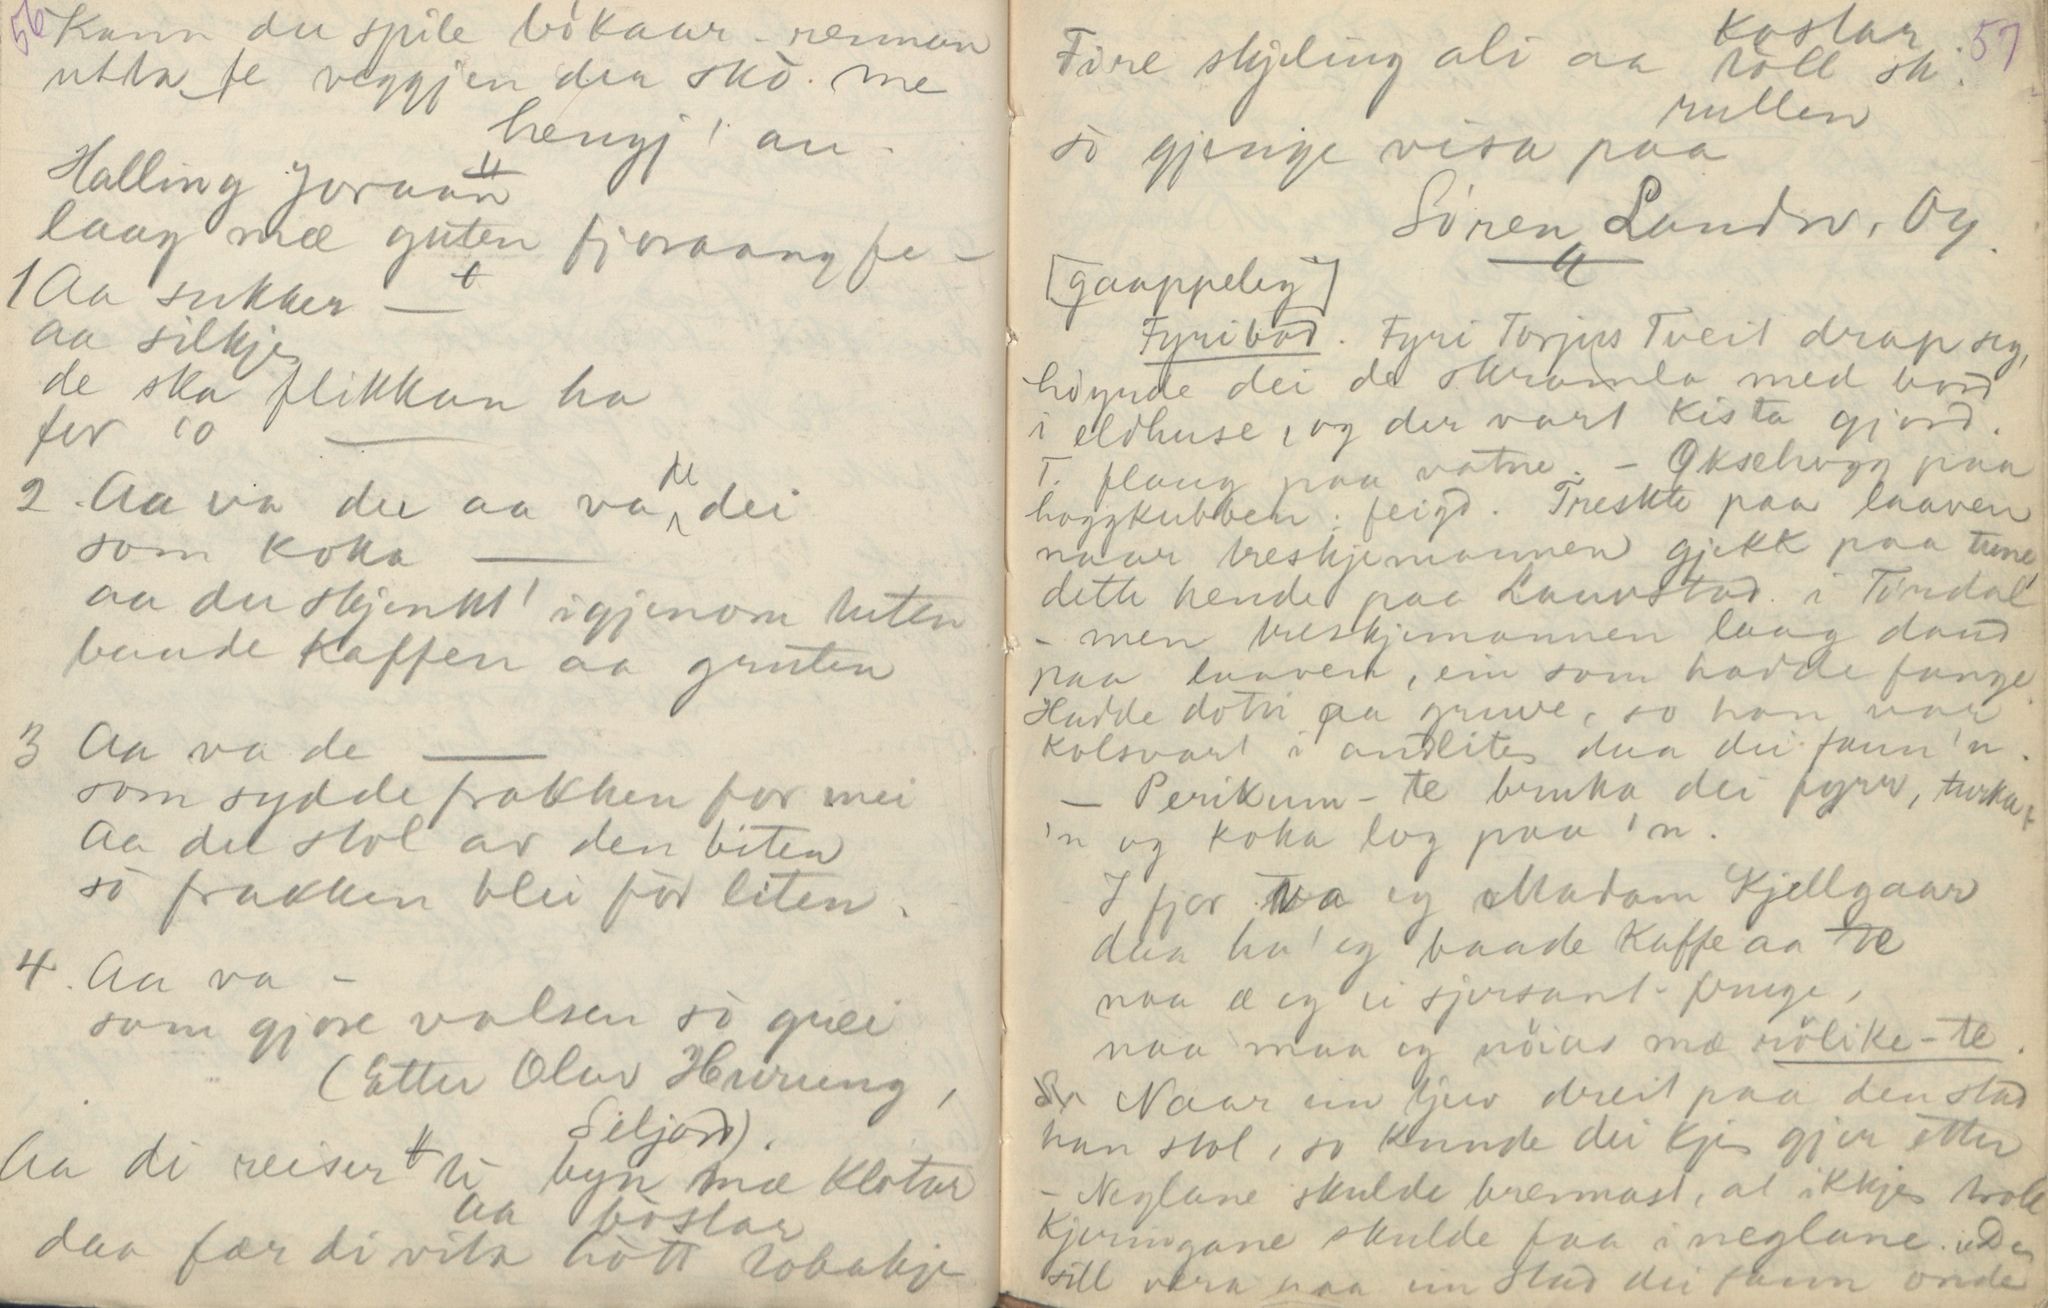 56
Kann du spile bòkaar - renman
utta te veggjen der sko me
hengj' an.
Halling Joraan
laag mæ guten fjoraang fe -
1 Aa sukker —
aa silkje
de ska flikkan ha
for 'o —
2. Aa va du aa va de dei
som koka —
aa du skjenkt' igjenom tuten
baade kaffen aa gruten
3 Aa va de —
som sydde frakken for mei
Aa du stol av den biten
sò frakken blei för liten.
4. Aa va -
som gjore valsen sò grei
(Etter Olav
Seljord).
Aa di reiser ti byn mæ klotar
aa bòstar
daa fær di vita hòtt tobakje
57
kostar
Fire skjeling ali aa toll sk.
rullen
sò gjenge visa paa
Sören Landrv. Og.
[gaappeleg]
Fyribod. Fyri Torjus Tveit drap seg,
höyrde dei de skramla med bord
i eldhuse, og der vart kista gjord.
T. flaug paa vatne. - Öksehogg paa
hoggkubben, feigd. Treskte paa laaven
naar treskjemannen gjekk paa tune
dette hende paa Lauvstad i Tördal
- men treskjemannen laag daud
paa laaven, ein som hadde fange.
Hadde dotti paa gruve, so han var
kolsvart i andlite, daa dei fann 'n.
- Perikum-te bruka dei fyrr, turka
'n og koka log paa 'n.
I fjor va eg Madam Kjellgaar
daa ha' eg baade kaffe aa te
naa æ eg ei sjersant-
naa maa eg nöias mæ rölike-te.
Naar ein tjuv dreit paa den stad
han stol, so kunde dei kje gjer etter
- Neglane skulde brennast, at ikkje troll
kjeringane skulde faa i neglane. De
sill vera naa ein stad dei onde